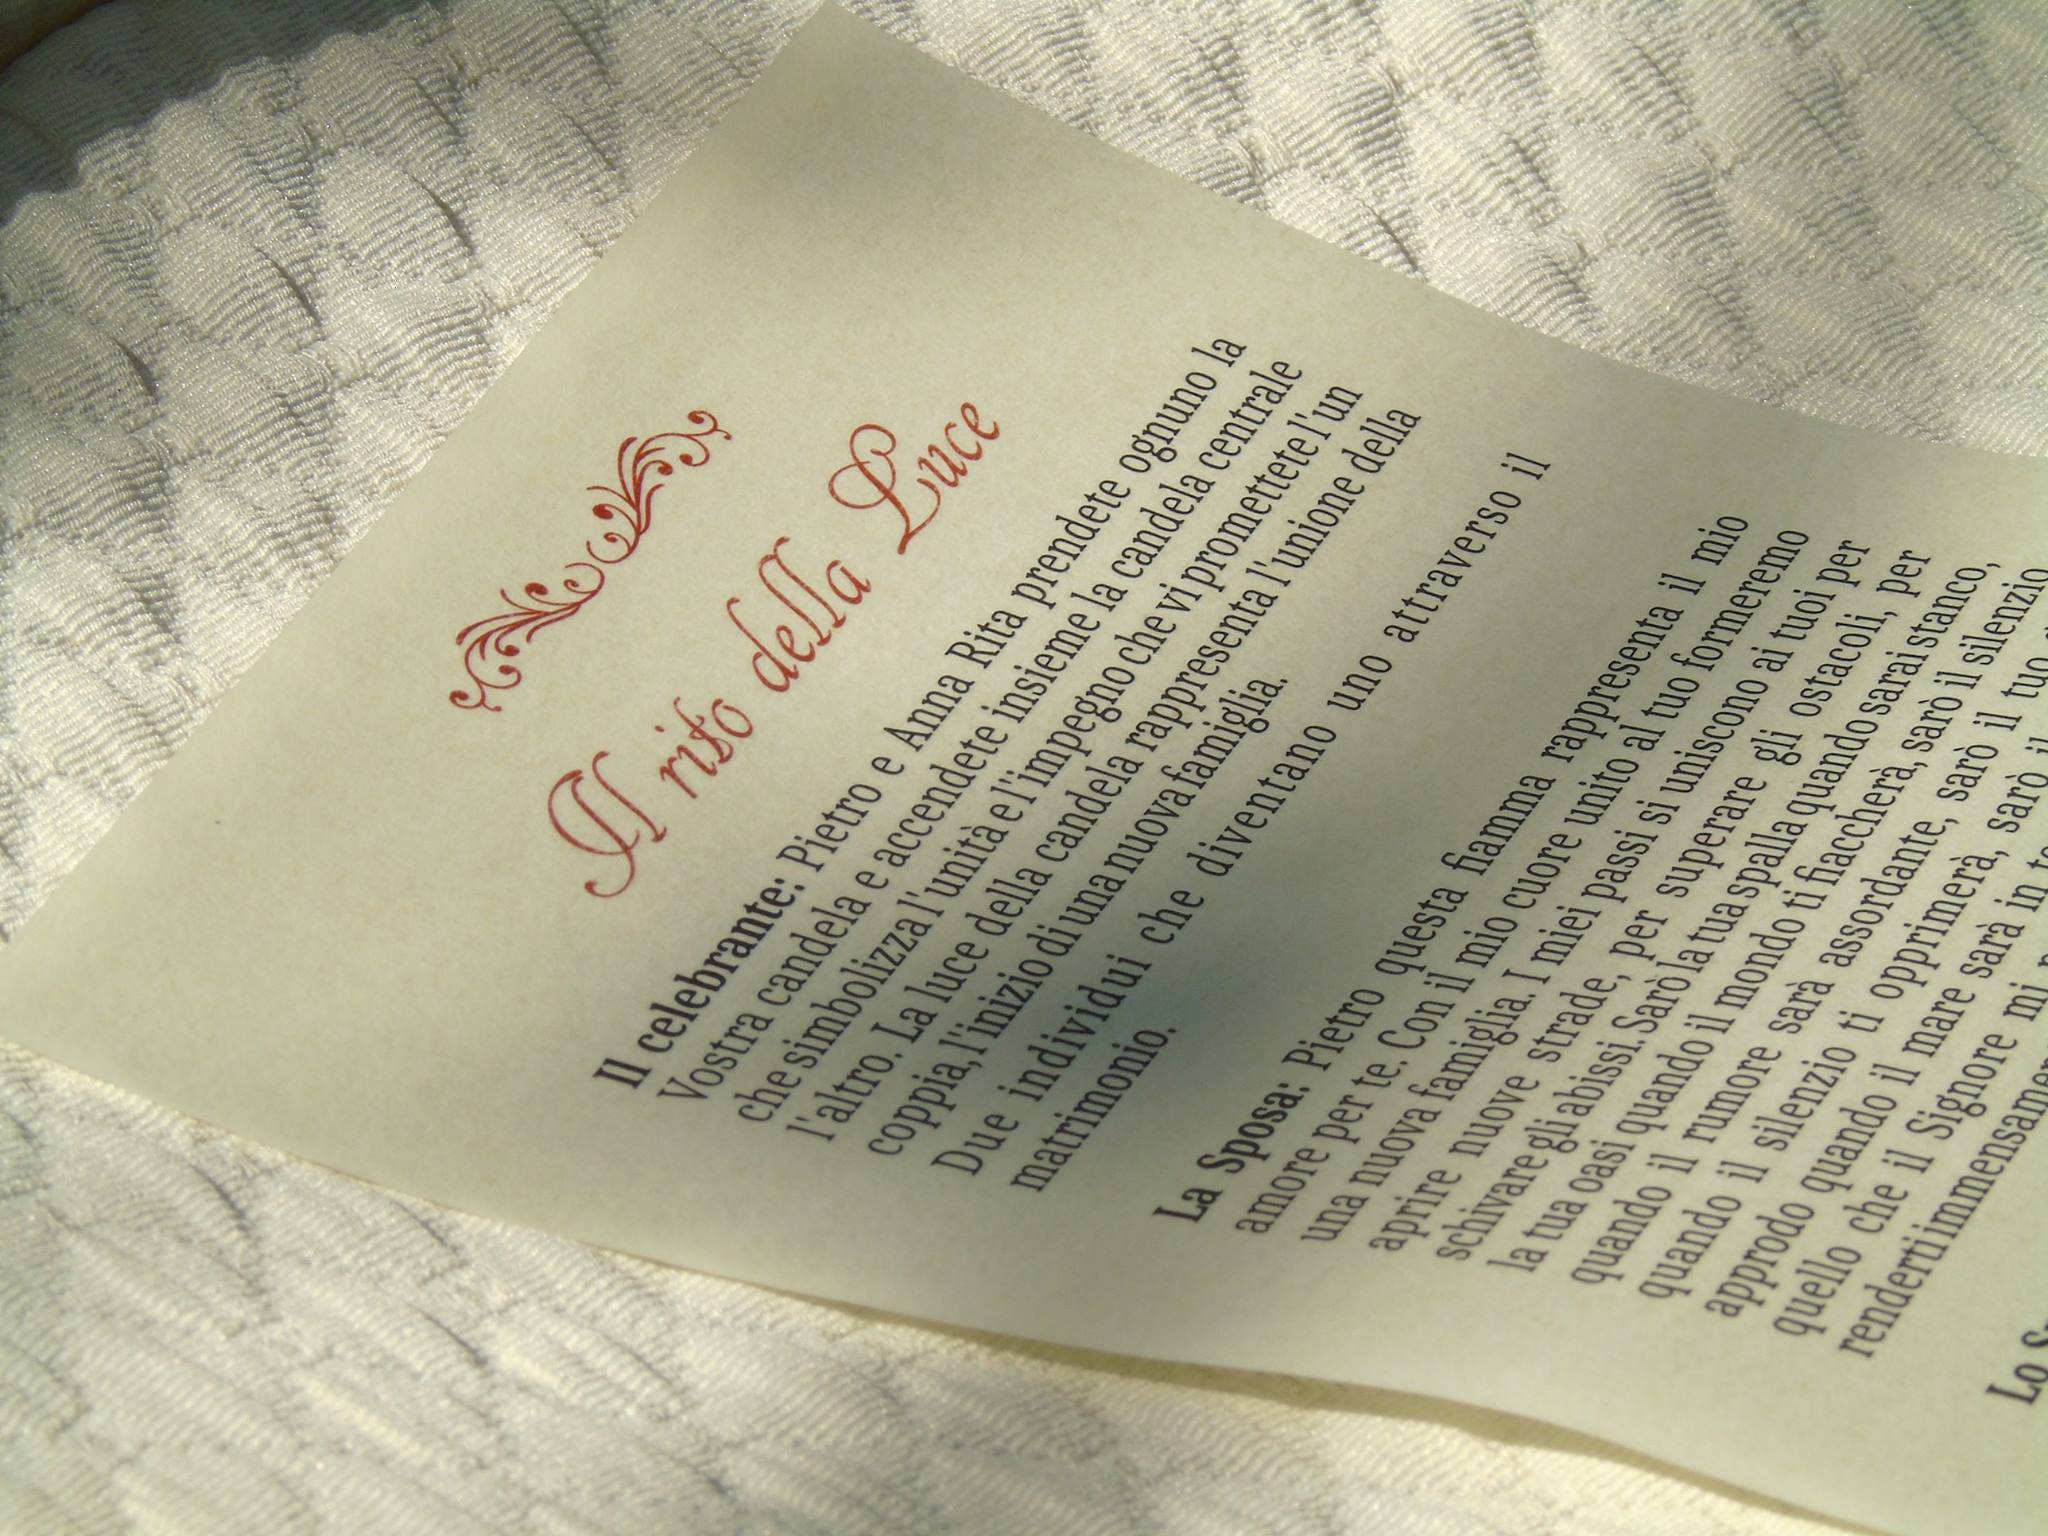 Il rito della Luce
Il celebrante: Pietro e Anna Rita prendete ognuno la
Vostra candela e accendete insieme la candela centrale
che simbolizza l'unità e l'impegno che vi promettete l'un
l'altro. La luce della candela rappresenta l'unione della
coppia, l'inizio di una nuova famiglia.
Due individui che diventano uno attraverso il
matrimonio.
La Sposa: Pietro questa fiamma rappresenta il mio
amore per te. Con il mio cuore unito al tuo formeremo
una nuova famiglia. I miei passi si uniscono ai tuoi per
aprire nuove strade, per superare gli ostacoli, per
schivare gli abissi. Sarò la tua spalla quando sarai stanco,
la tua oasi quando il mondo ti fiaccherà, sarò il silenzio
quando il rumore sarà assordante, sarò il tuo
quando il silenzio ti opprimerà, sarò il
approdo quando il mare sarà in
quello che il Signore mi
renderti
Lo